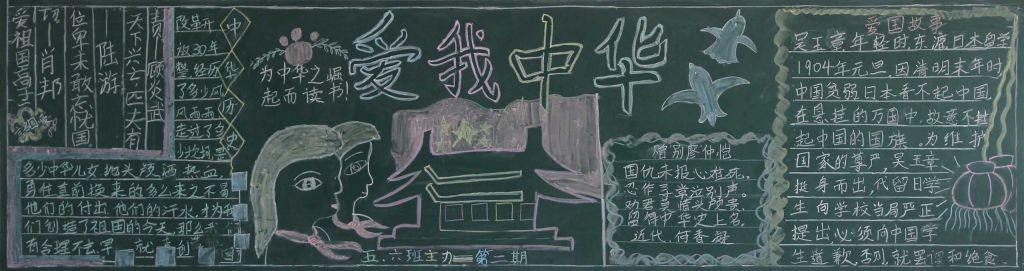 爱我中华
为中华之崛
起而读书!
天下兴亡 匹夫有
责 — 顾炎武
位卑未敢忘国
— 陆游
爱祖国高于一
切 — 肖邦
中
华
历
史
改革开
放30年
整经历
了多少风
风雨雨
走过了多
多少中华儿女抛头颅洒热血
勇往直前换来的多么来之不易
他们的付出,他们的汗水,才为我
们创造了祖国的今天,那么我们
有合理不去
赠别廖仲恺
国仇未报心难死,
忍作寻常泣别声。
劝君莫惜头颅贵,
留得中华史上名。
近代,何香凝
爱国故事
吴玉章年轻时东渡日本留学
1904年元旦,因清明末年时
中国贫弱日本看不起中国,
在悬挂的万国中,故意不挂
起中国的国旗。为维护
国家的尊严,吴玉章
挺身而出,代留日学
生向学校当局严正
提出,必须向中国学
生道歉,否则就罢课和绝食.
五、六班主办 — 第二期